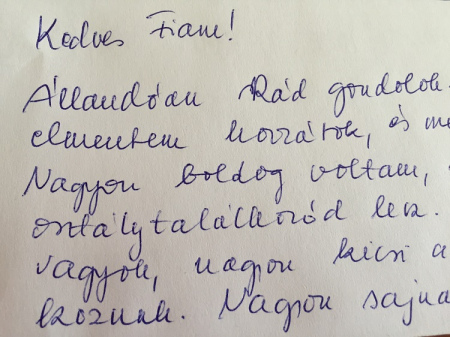 Kedves Fiam!
Állandóan Rád gondolok
elmentem hozzátok, és me
Nagyon boldog voltam,
osztálytalálkozód lesz.
vagyok, nagyon kicsi a
hozunk. Nagyon sajna